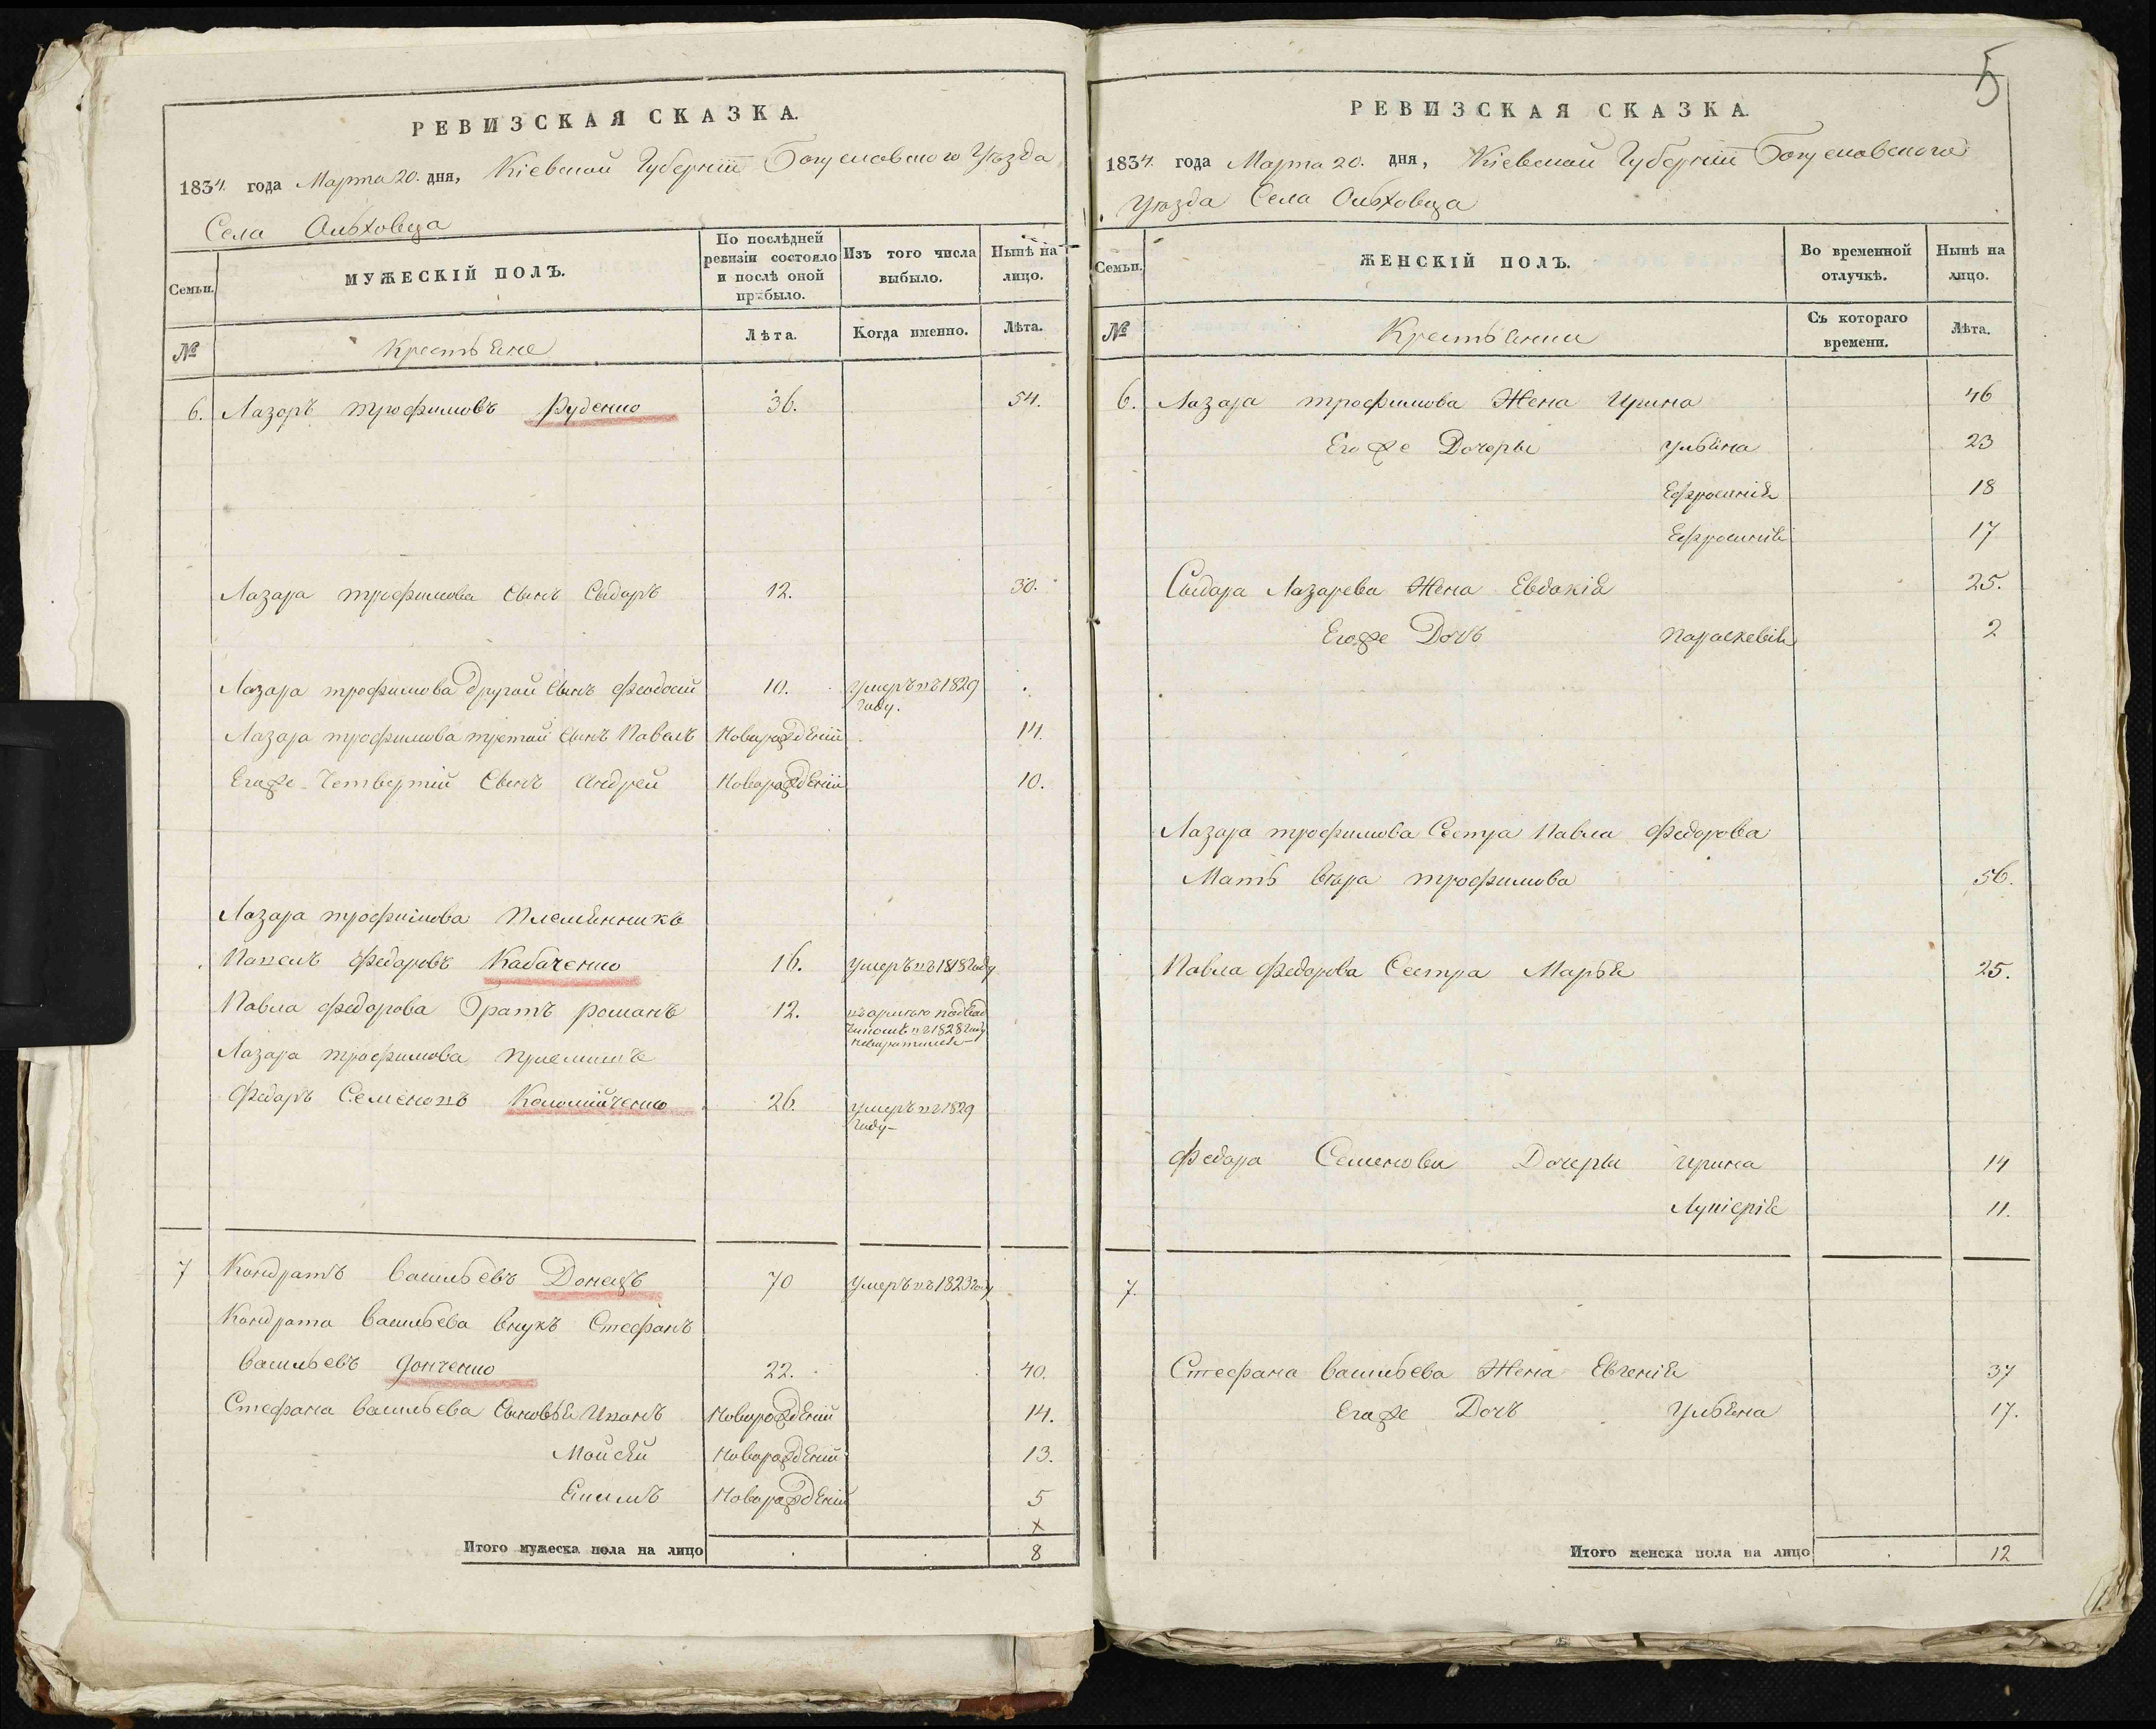 РЕВИЗСКАЯ СКАЗКА.
1834. года Марта 20. дня, Кіевской Губерніи Богуславского Уѣзда
Села Ольховца
Семьи.
МУЖЕСКІЙ ПОЛЪ.
По послѣдней ревизіи состояло и послѣ оной прибыло.
Изъ того числа выбыло.
Нынѣ на лицо.
№
Крестьяне
Лѣта.
Когда именно.
Лѣта.
6. Лазоръ трофимовъ Руденко 36. 54.
Лазара трофимова сынъ Сыдоръ 12. 30.
Лазара трофимова другой сынъ Феодосій 10. умеръ въ 1829
году.
Лазара трофимова третий сынъ Павелъ Новорожденій 14.
Егоже Четвертій Сынъ Андрей Новорожденій 10.
Лазара трофимова племянникъ
Павелъ Федоровъ Кабаченко 16. умеръ въ 1818 году
Павла Федорова Братъ Романъ 12.
въ 1828 году
Лазара трофимова приемишъ
Федоръ Семеновъ Коломійченко 26. умеръ въ 1829
году
7 Кондратъ Васильевъ Донецъ 70 умеръ въ 1823 году
Кондрата Васильева внукъ Стефанъ
Васильевъ Донченко 22. 40.
Стефана Васильева сыновья Иванъ Новорожденій 14.
Мойсей Новорожденій 13.
Екимъ Новорожденій 5
х
Итого мужеска пола на лицо . . 8
5
РЕВИЗСКАЯ СКАЗКА.
1834. года Марта 20. дня, Кіевской Губерніи Богуславского
Уѣзда Села Ольховца
Семьи.
ЖЕНСКІЙ ПОЛЪ.
Во временной отлучкѣ.
Нынѣ на лицо.
№
Крестьянки
Съ котораго времени.
Лѣта.
6. Лазара трофимова Жена Ирина 46
Егоже Дочеры Ульяна 23
Ефросинія 18
Ефросинія 17
Сыдора Лазарева Жена Евдокія 25.
Егоже Дочь Параскевія 2
Лазара трофимова Сестра Павла Федорова
Мать вѣра трофимова 56.
Павла Федорова Сестра Марья 25.
Федора Семенова Дочеры Ирина 14
Лукерія 11.
7.
Стефана Васильева Жена Евгенія 37
Егоже Дочь Ульяна 17.
Итого женска пола на лицо . 12